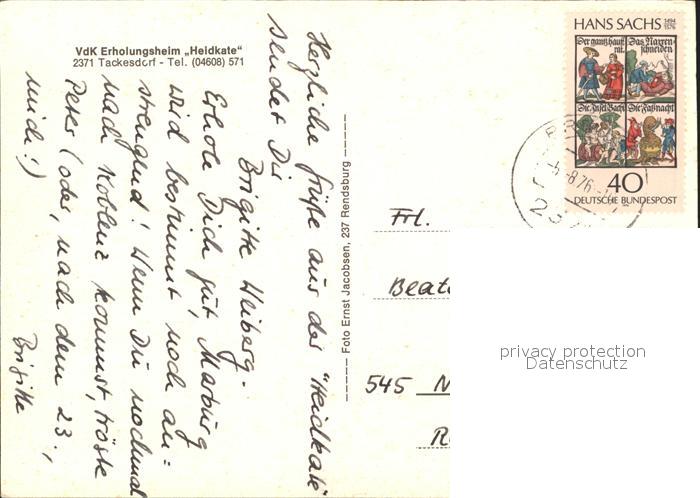 VdK Erholungsheim „Heidkate"
2371 Tackesdorf - Tel. (04608) 571
Herzliche Grüße aus der "Heidkate"
sendet Dir
Brigitte Weiberg.
Erhole Dich gut, Marburg
wird bestimmt noch an=
strengend! Wenn Du nochmal
nach Koblenz kommst, tröste
Peter (oder, nach dem 23.,
mich!)
Brigitte
Foto Ernst Jacobsen, 237 Rendsburg
HANS SACHS 1494 1576
Der gantz hauß rat.
Das Narren schneiden
Die Insel Bachi
Die Faßnacht
40
DEUTSCHE BUNDESPOST
-8.76
Frl.
Beate
545 N
R
privacy protection
Datenschutz